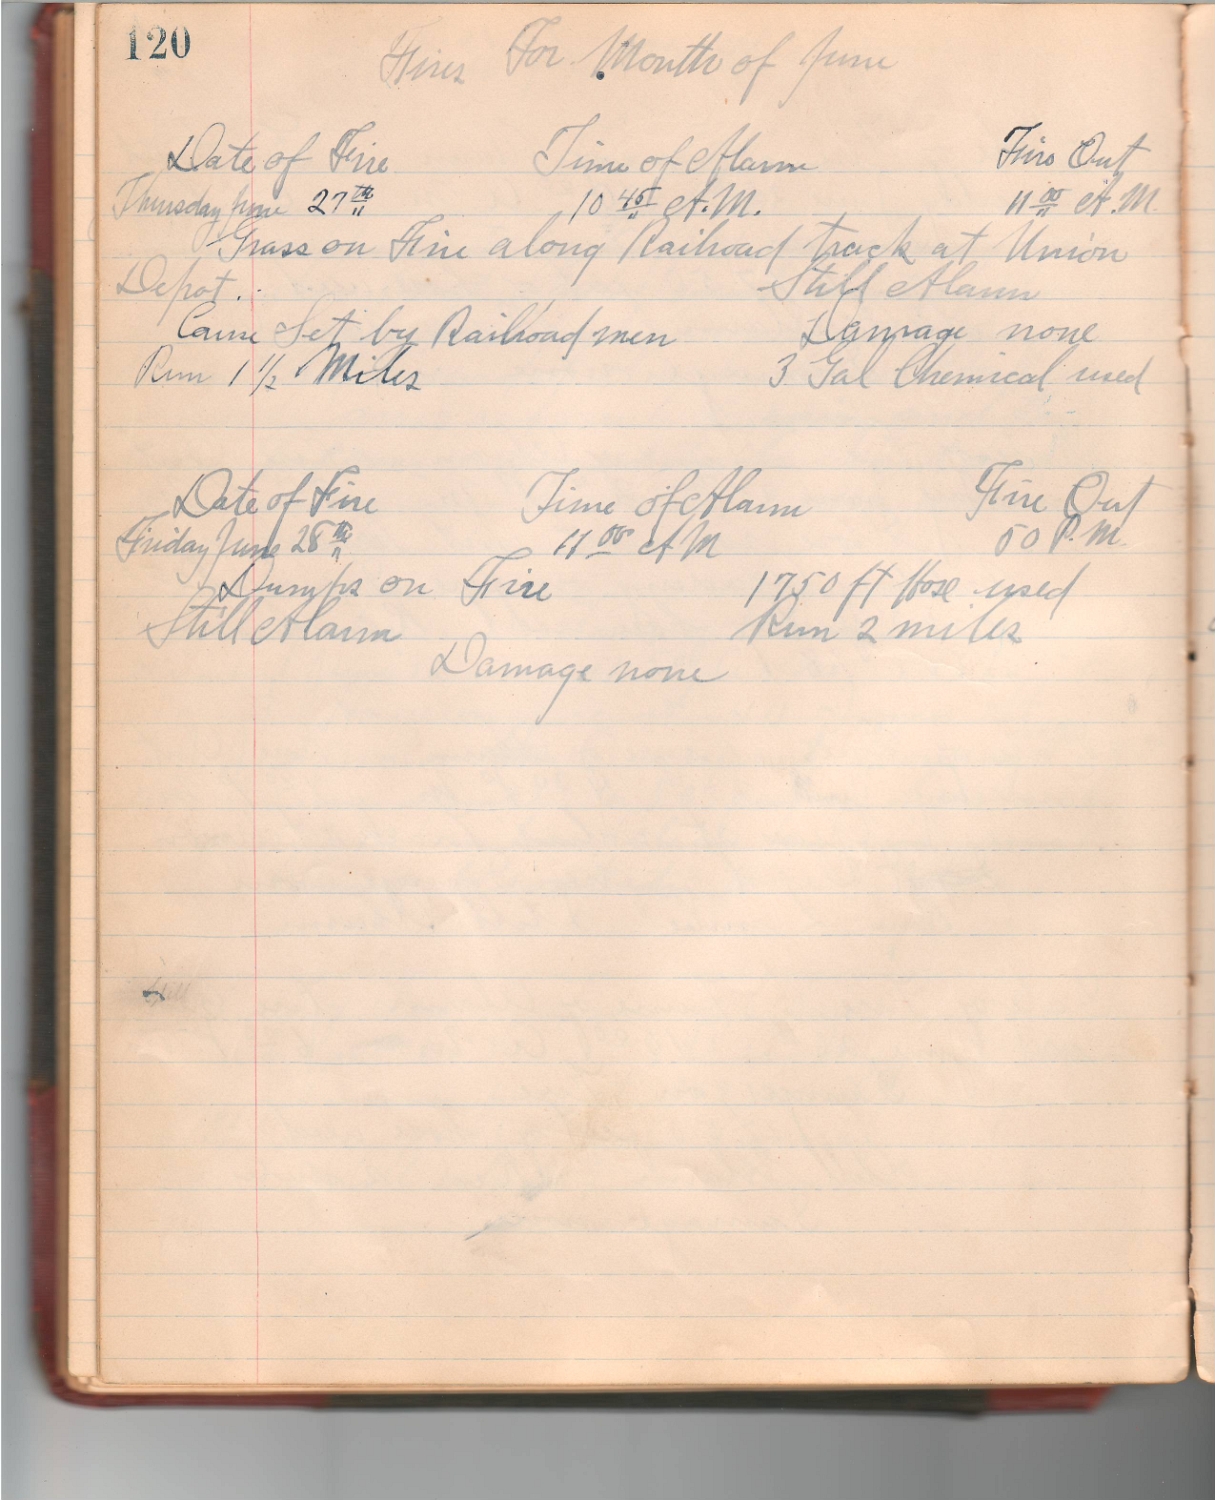 120
Fires For Month of June
Date of Fire Time of Alarm Fire Out
Thursday June 27th 10 45 A.M. 11 00 A.M.
Grass on Fire along Railroad track at Union
Depot.. Still Alarm
Cause Set by Railroad men Damage none
Run 1 1/2 Miles 3 Gal Chemical used
Date of Fire Time of Alarm Fire Out
Friday June 28th 11 00 A M 50 P.M.
Dumps on Fire 1750 ft Hose used
Still Alarm Run 2 miles
Damage none
Still